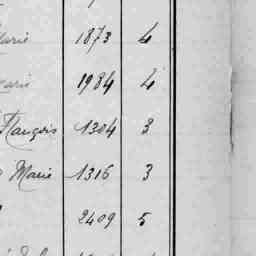 Marie 1873 4
Marie 1984 4
François 1304 3
Marie 1316 3
2409 5